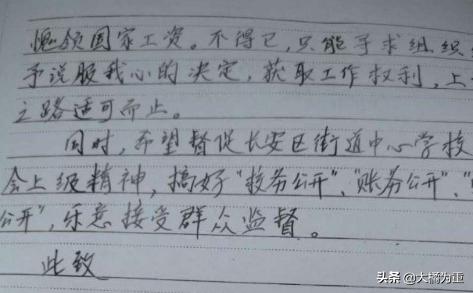 愧领国家工资。不得已，只能寻求组织
予说服我心的决定，获取工作权利，上
之路适可而止。
同时，希望督促长安区街道中心学校
会上级精神，搞好“校务公开”、“账务公开”、“
公开”，乐意接受群众监督。
此致
头条 @大橘为重